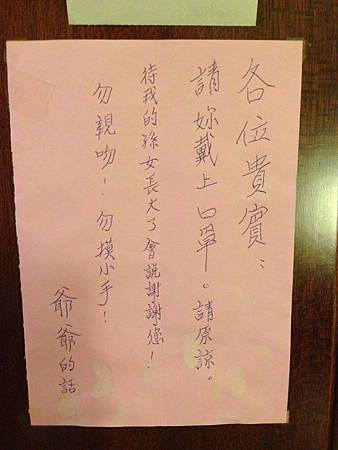 各位貴賓：
請妳戴上口罩。請原諒。
待我的孫女長大了會説謝謝您！
勿親吻！勿摸小手！
爺爺的話